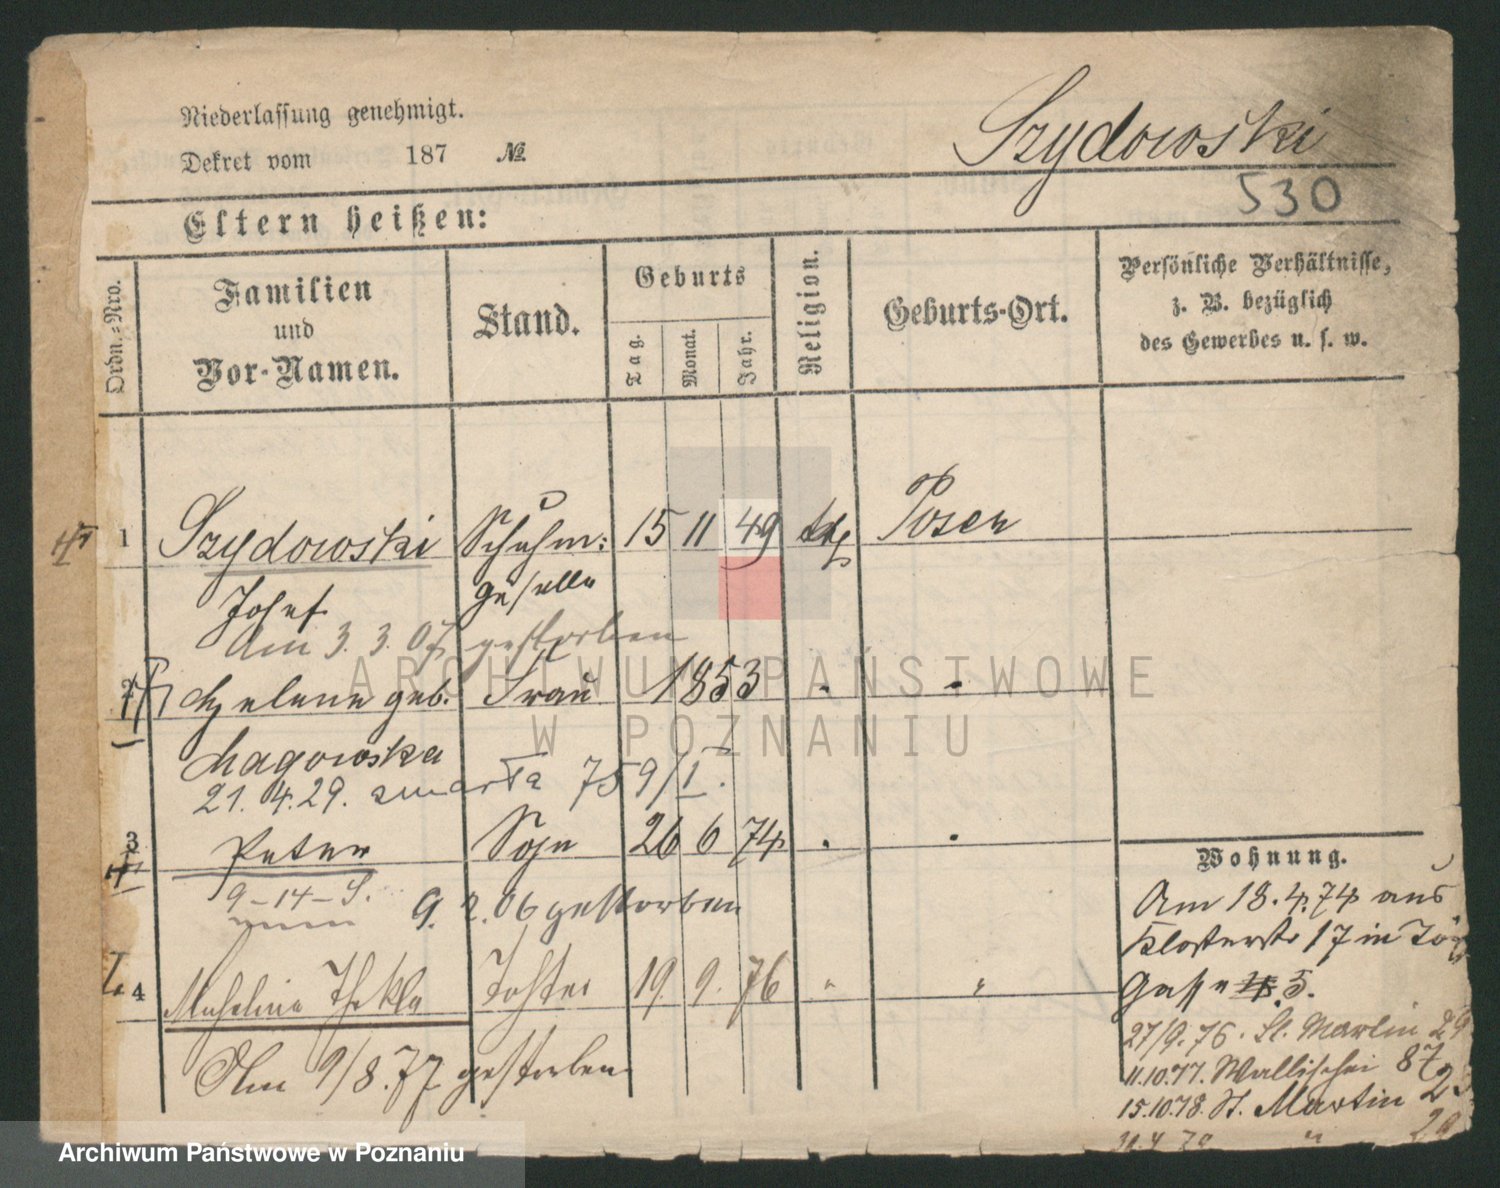 Niederlassung genehmigt.
Dekret vom 187 №
Szydowski
530
Eltern heißen:
Ordn.=Nro.
Familien
und
Vor-Namen.
Stand.
Geburts
Tag.
Monat.
Jahr.
Religion.
Geburts-Ort.
Persönliche Verhältnisse,
z. B. bezüglich
des Gewerbes u. s. w.
1 Szydowski Schuhm: 15 11 49 kth Posen
Josef Geselle
Am 3.3.07 gestorben
2 Helene geb. Frau 1853 " "
Magowska
21.4.29. zmarła 759/I.
3 Peter Sohn 26 6 74 " "
9-14-S.
9.2.06 gestorben
4 Thekla Tochter 19. 9. 76 " "
Am 9/8.77 gestorben
Wohnung.
Am 18.4.74 aus
Klosterstr 17 in
Gasse 5.
27/9.76. St. Martin 29
11.10.77. Wallischei 87
15.10.78. St. Martin 23
ARCHIWUM PAŃSTWOWE
W POZNANIU
Archiwum Państwowe w Poznaniu